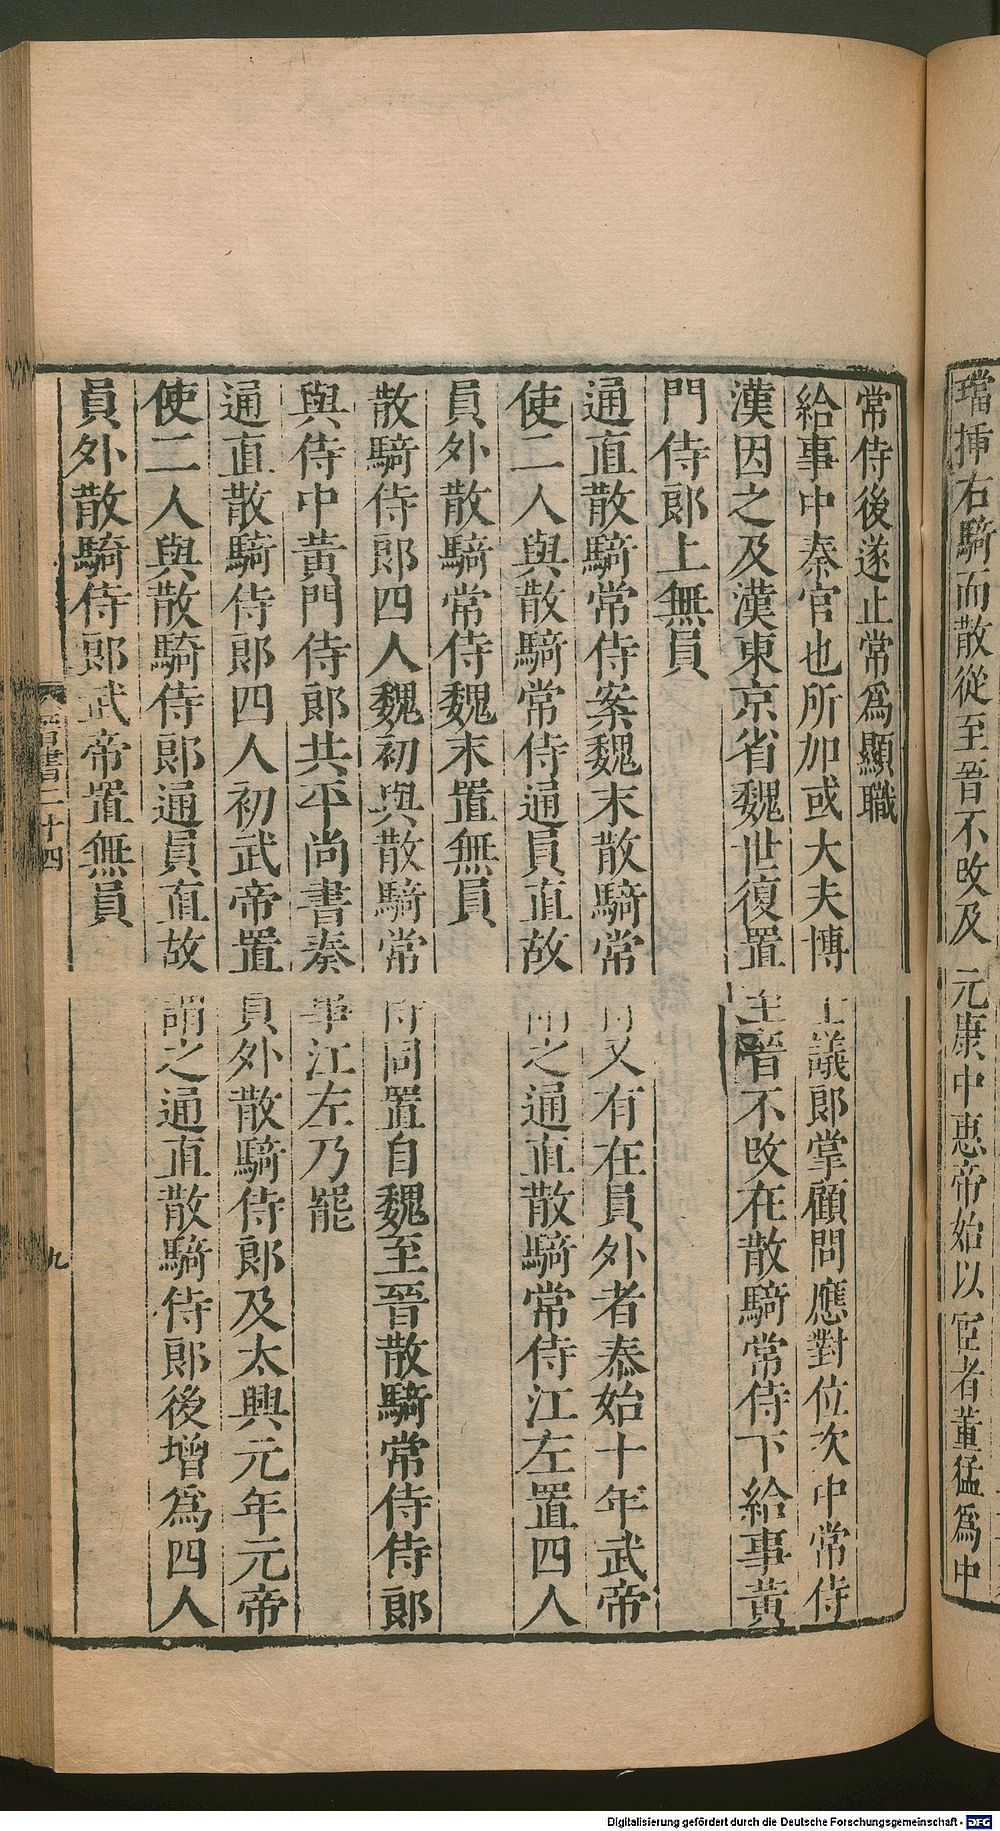 璫揷右騎而散從至晉不改及元康中惠帝始以宦者董猛爲中
常侍後遂止常爲顯職
給事中秦官也所加或大夫博士議郎掌顧問應對位次中常侍
漢因之及漢東京省魏世復置至晉不改在散騎常侍下給事黃
門侍郎上無員
通直散騎常侍案魏末散騎常侍又有在員外者泰始十年武帝
使二人與散騎常侍通員直故謂之通直散騎常侍江左置四人
員外散騎常侍魏末置無員
散騎侍郎四人魏初與散騎常侍同置自魏至晉散騎常侍侍郎
與侍中黃門侍郎共平尚書奏事江左乃罷
通直散騎侍郎四人初武帝置員外散騎侍郎及太興元年元帝
使二人與散騎侍郎通員直故謂之通直散騎侍郎後增爲四人
員外散騎侍郎武帝置無員
晉書二十四 九
Digitalisierung gefördert durch die Deutsche Forschungsgemeinschaft - DFG